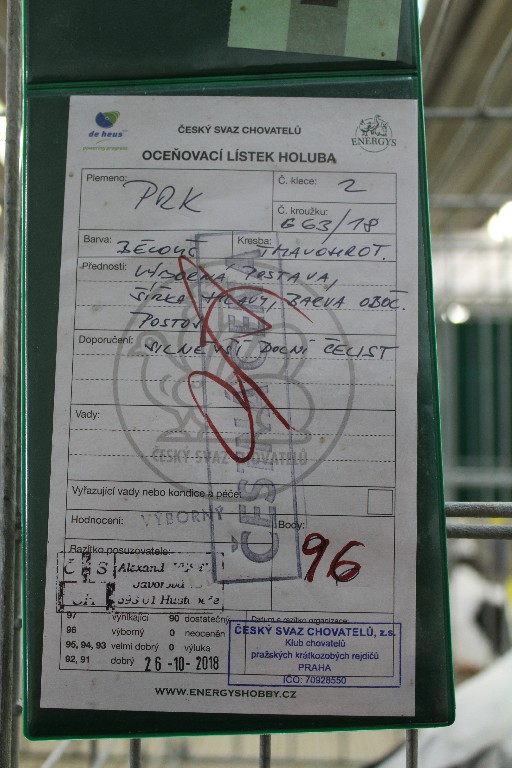 de heus
powering progress
ČESKÝ SVAZ CHOVATELŮ
ENERGYS
OCEŇOVACÍ LÍSTEK HOLUBA
Plemeno: PRK
Č. klece: 2
Č. kroužku: 663/18
Barva: BĚLOUŠ Kresba: TMAVOHROT.
Přednosti: VÝBORNÁ POSTAVA,
ŠÍŘKA HLAVY, BARVA OBOČ.
POSTOJ
Doporučení: SILNĚJŠÍ DOLNÍ ČELIST
Vady:
ČESKÝ SVAZ CHOVATELŮ
ČESTNÁ CENA
Vyřazující vady nebo kondice a péče:
Hodnocení: VÝBORNÝ Body: 96
Razítko posuzovatele:
ČS
Alexand
Javorová
693 01 Hustopeče
97 vynikající 90 dostatečný
96 výborný 0 neoceněn
95, 94, 93 velmi dobrý 0 výluka
92, 91 dobrý 26 -10- 2018
Datum a razítko organizace:
ČESKÝ SVAZ CHOVATELŮ, z.s.
Klub chovatelů
pražských krátkozobých rejdičů
PRAHA
IČO: 70928550
WWW.ENERGYSHOBBY.CZ